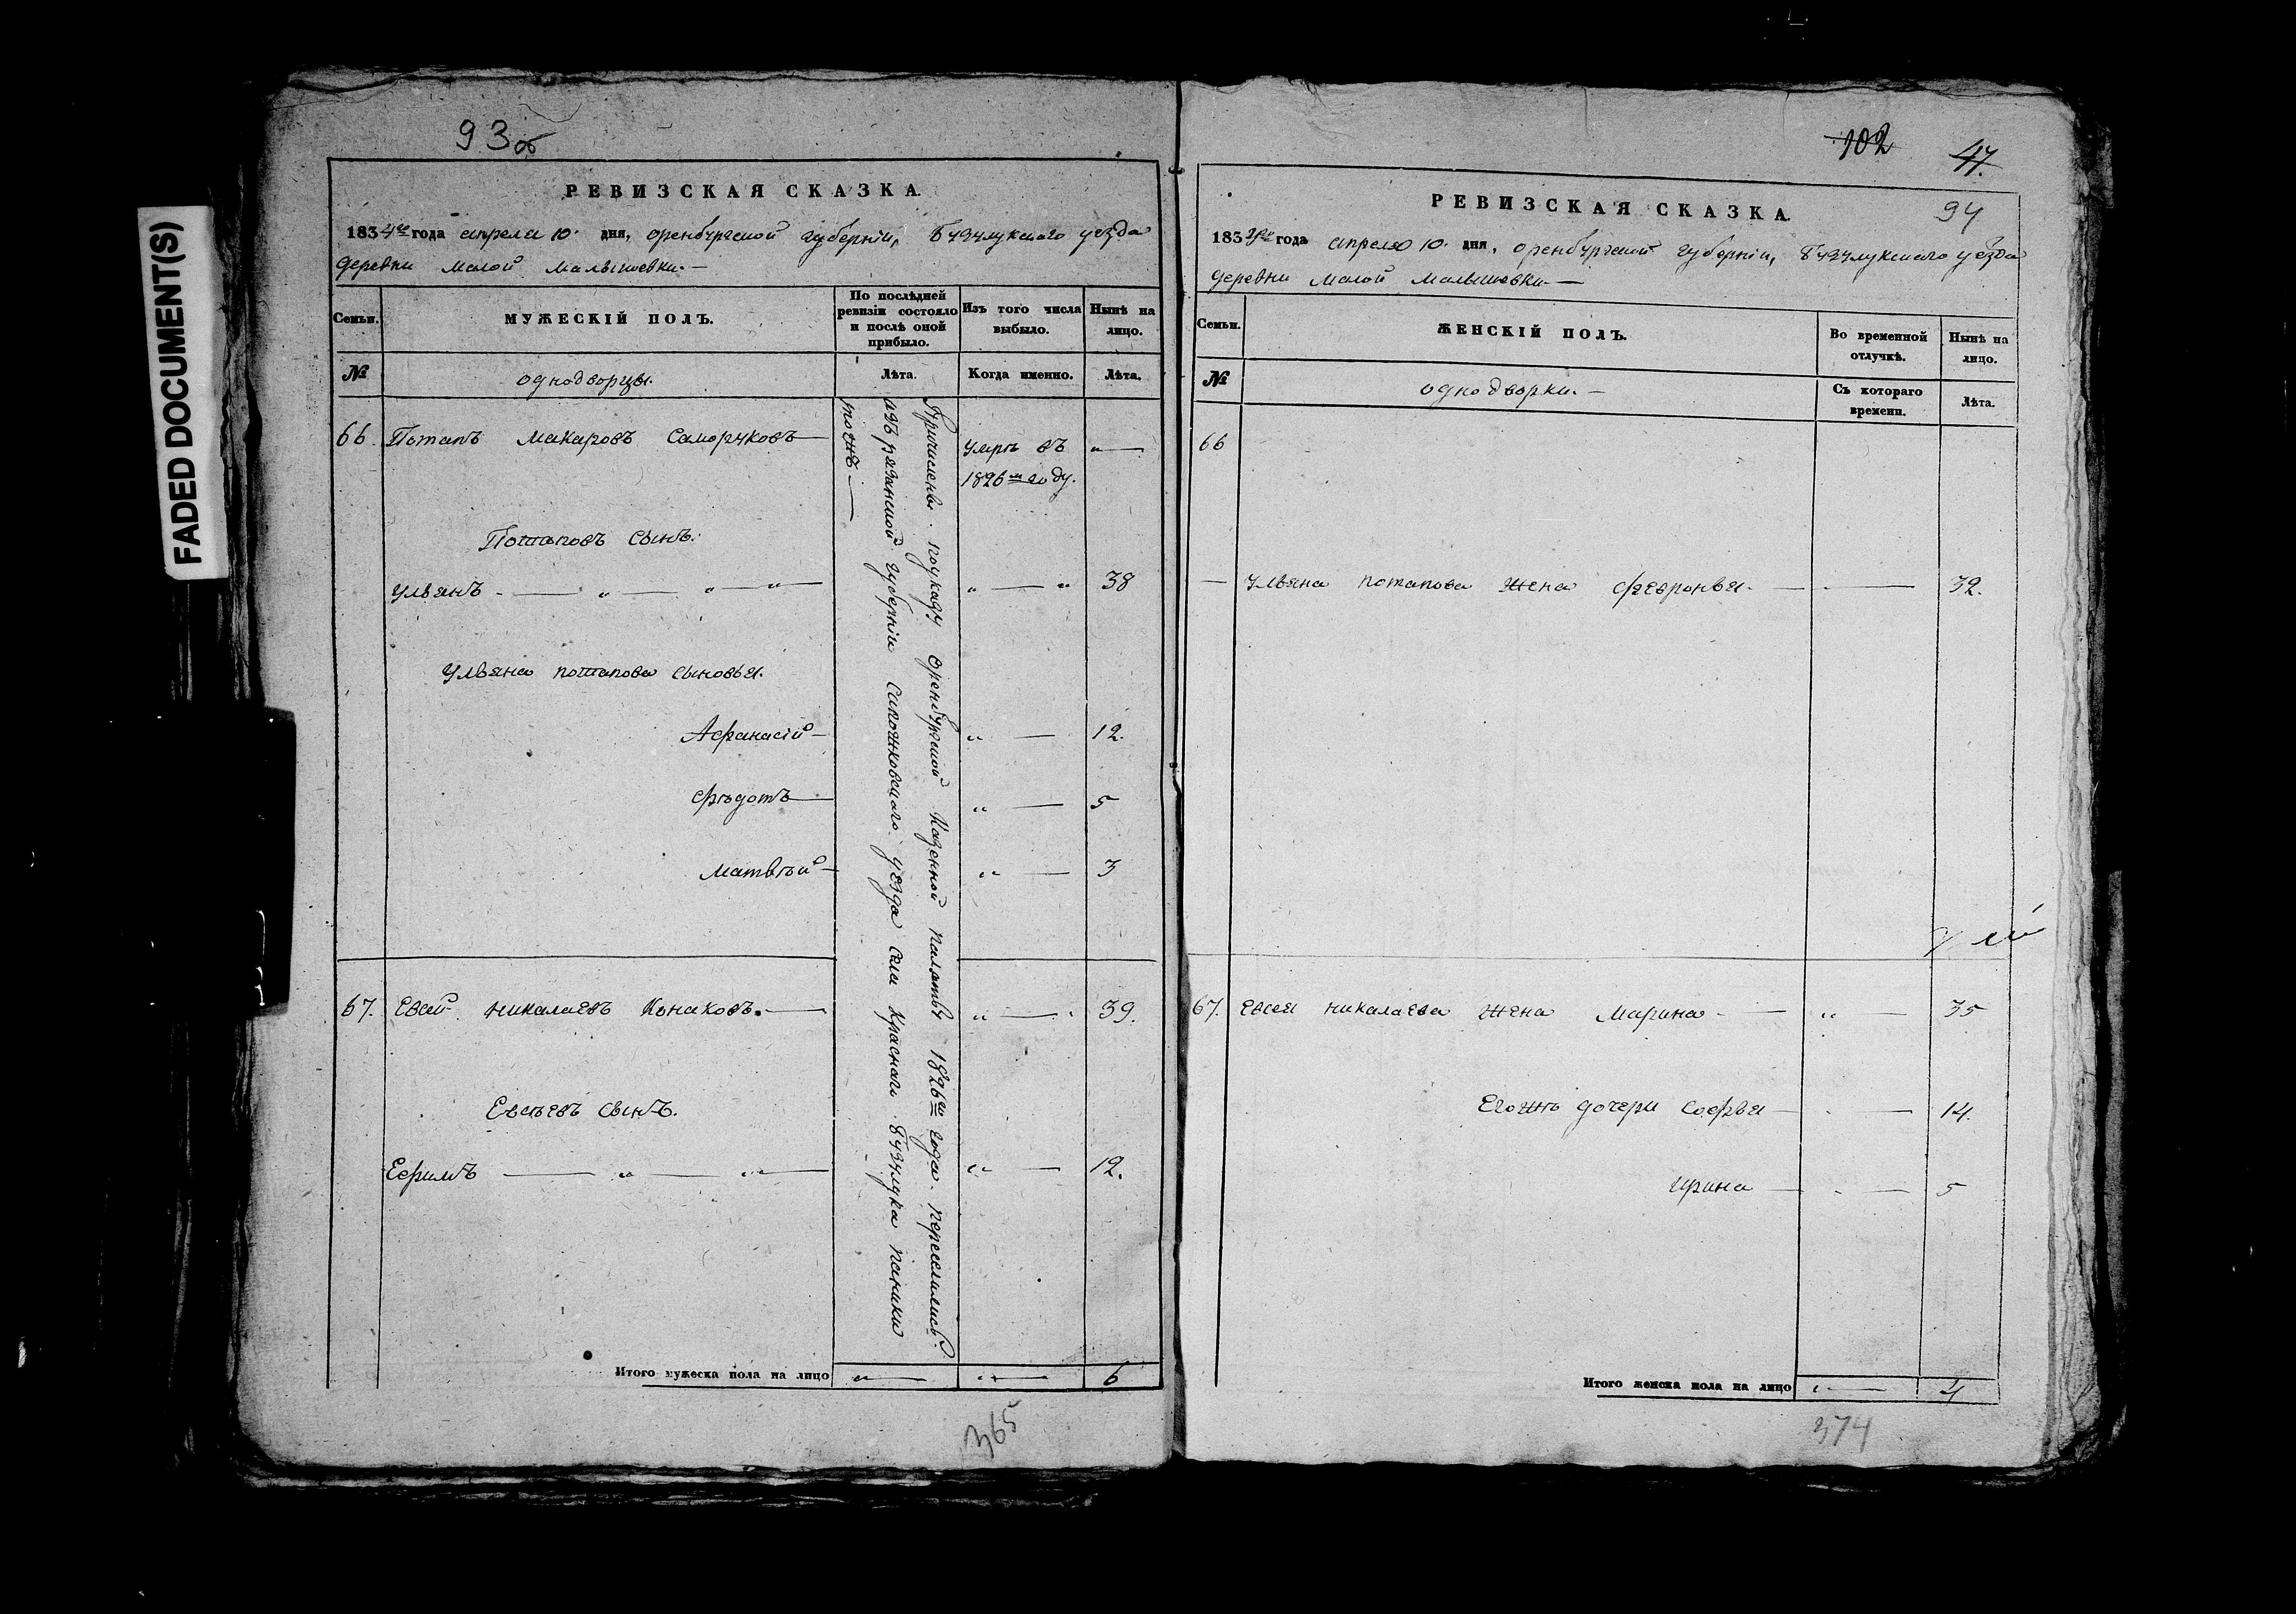 FADED DOCUMENT(S)
93об
РЕВИЗСКАЯ СКАЗКА
1834го года апреля 10. дня, оренбургской губерніи, бузулукскаго уезда
деревни малой малышевки.—
Семьи.
МУЖЕСКІЙ ПОЛЪ.
По послѣдней ревизіи состояло и послѣ оной прибыло.
Изъ того числа выбыло.
Нынѣ на лицо.
№
однодворцы.
Лѣта.
Когда именно.
Лѣта.
66. Потапъ макаровъ Саморуковъ — умръ въ „—
1826м году.
Потаповъ сынъ.
ульянъ - — „ — „ — „ „ — „ 38
Ульяна потапова сыновья.
Афанасій — „ — 12.
Фѣдотъ — „ — 5
матвѣй — „ — 3
67. Евсей николаевъ Конаковъ. — „ — . 39.
Евсѣевъ сынъ.
Ефимъ — „ — „ — „ — 12.
Причислены поуказу оренбургской казенной палаты 1826го года. переселились
изъ рязанской губерніи сапожковскаго уезда села красного
тожъ. —
Итого мужеска пола на лицо „— „— 6
365
102
47.
94
РЕВИЗСКАЯ СКАЗКА
1834го года апреля 10. дня, оренбургской губерніи, бузулукскаго уезда
деревни малой малышевки.—
Семьи.
ЖЕНСКІЙ ПОЛЪ.
Во временной отлучкѣ.
Нынѣ на лицо.
№
однодворки.—
Съ котораго времени.
Лѣта.
66
— ульяна потапова жена феврónья. — — 32.
67. евсея николаева жена марина — — „ — 35
Егожъ дочери Софья — - — 14.
ирина — - — 5
Итого женска пола на лицо „— 4
374